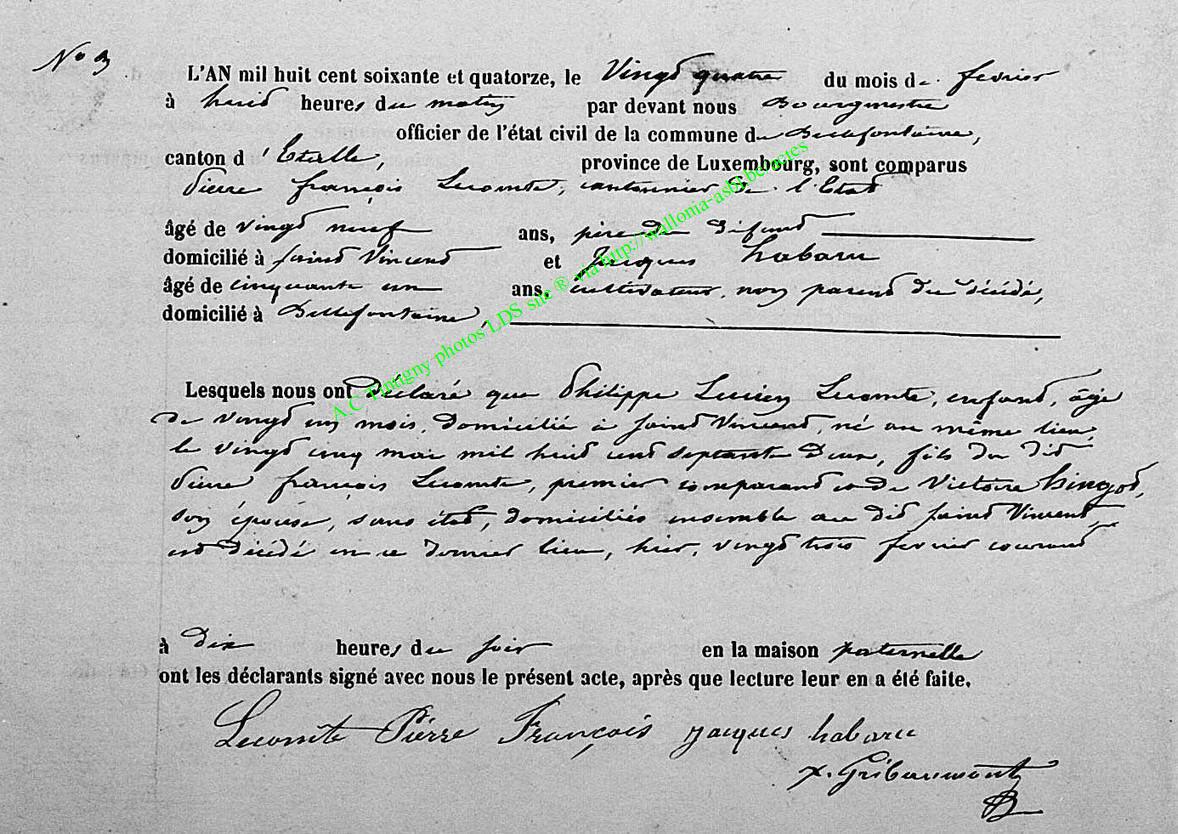 No 3
L'AN mil huit cent soixante et quatorze, le Vingt quatre du mois de fevrier
à huit heures du matin par devant nous Bourgmestre
officier de l'état civil de la commune de Bellefontaine,
canton d'Etalle, province de Luxembourg, sont comparus
Pierre françois Lecomte, cantonnier de l'Etat
âgé de vingt neuf ans, père du défunt
domicilié à saint Vincent et Jacques habaru
âgé de cinquante un ans, cultivateur, non parent du décédé,
domicilié à Bellefontaine,
Lesquels nous ont déclaré que Philippe Lucien Lecomte, enfant, âgé
de vingt un mois, domicilié à saint Vincent, né au même lieu,
le vingt cinq mai mil huit cent septante deux, fils du dit
Pierre françois Lecomte, premier comparant et de Victoire hingot,
son épouse, sans état, domiciliés ensemble au dit saint Vincent,
est décédé en ce dernier lieu, hier, vingt trois fevrier courant
à dix heures du soir en la maison paternelle
ont les déclarants signé avec nous le présent acte, après que lecture leur en a été faite.
Lecomte Pierre François jacques habaru
x. Gribaumont
A.C Tintigny photos LDS suc ® via http://wallonia-asbl.be/actes